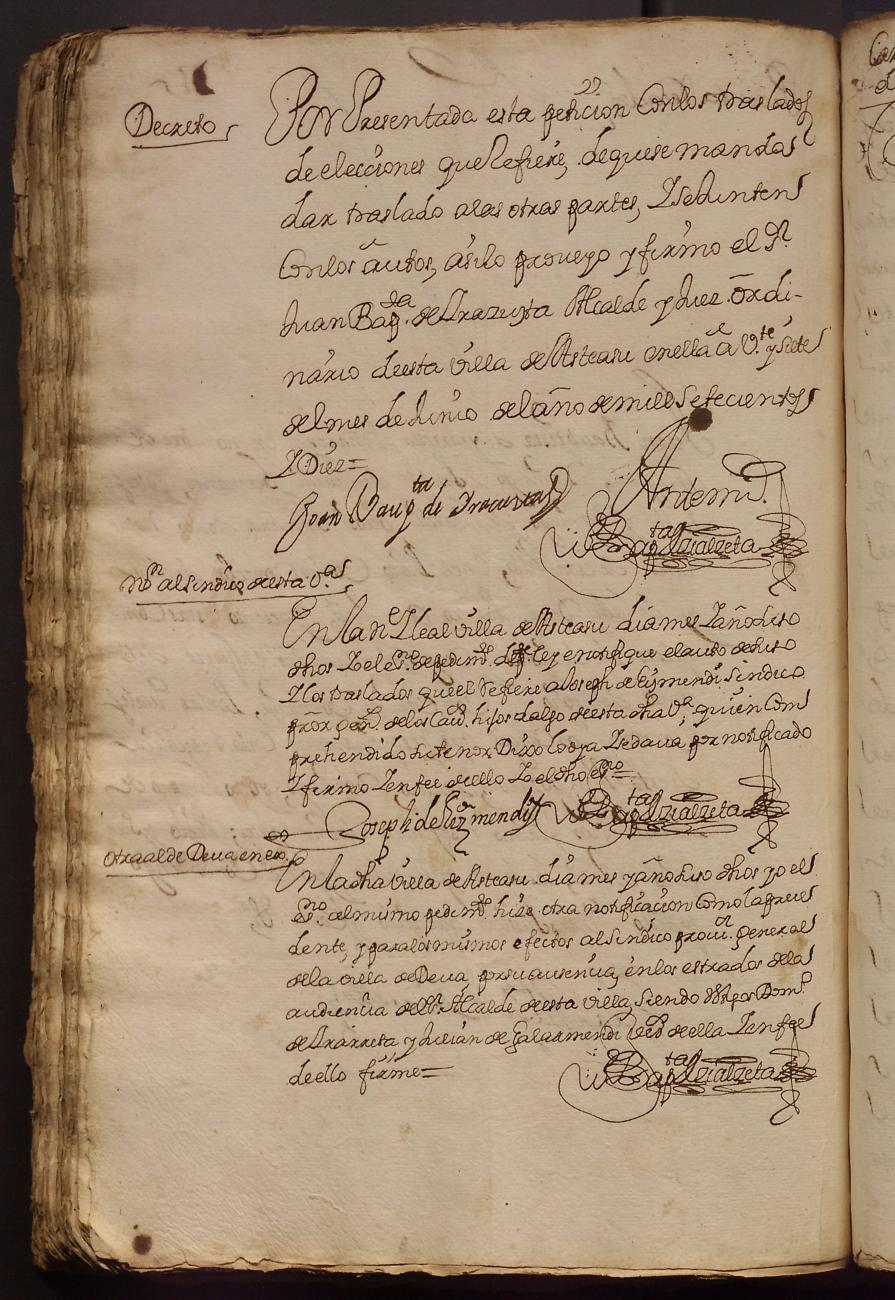 Decreto
Por Presentada esta peticion Conlos traslados
de elecciones que Refiere, dequese manda
dar traslado alas otras partes, Y se Junten
Conlos autos, asilo proueyo y firmo el Sr.
Juan Bapta. de Yrazusta Alcalde y Juez ordi-
nario deesta villa de Asteasu enella a Vte. y siete
del mes de Junio del año de mill Setecientos
Y Diez=
Joan Baupta de Yracusta
Antemi.
Bapta Yzialzeta
Non. alsindico deesta Va.
En la Ne. Y leal villa de Asteasu dia mes Y año suso
dhos Yo el Esno. de pedimto. ley e notifique el auto de suso
Y los traslados que el Refiere a Joseph de Eizmendi Sindico
pror. gen. delos Caus. hijos dalgo deesta dha Va., quien Com
prehendido su tenor Dixo lo oya Y se daua por notificado
Y firmo Y en fee de ello Yo el dho Esno=
Joseph de Eizmendi
Bapta Yzialzeta
otra al de Deua en ex.
En la dha villa de Asteasu dia mes y año suso dhos yo el
Esno. al mismo pedimto. hize otra notificacion Como la prece
dente, y para los mismos efectos al Sindico procur. general
de la villa de Deua, por su ausencia, en los estrados de la
audiencia del Sr. Alcalde deesta villa, siendo tgos Domo.
de Yrarreta y Julian de Galarmendi Vos. de ella Y en fee
de ello firme=
Bapta Yzialzeta